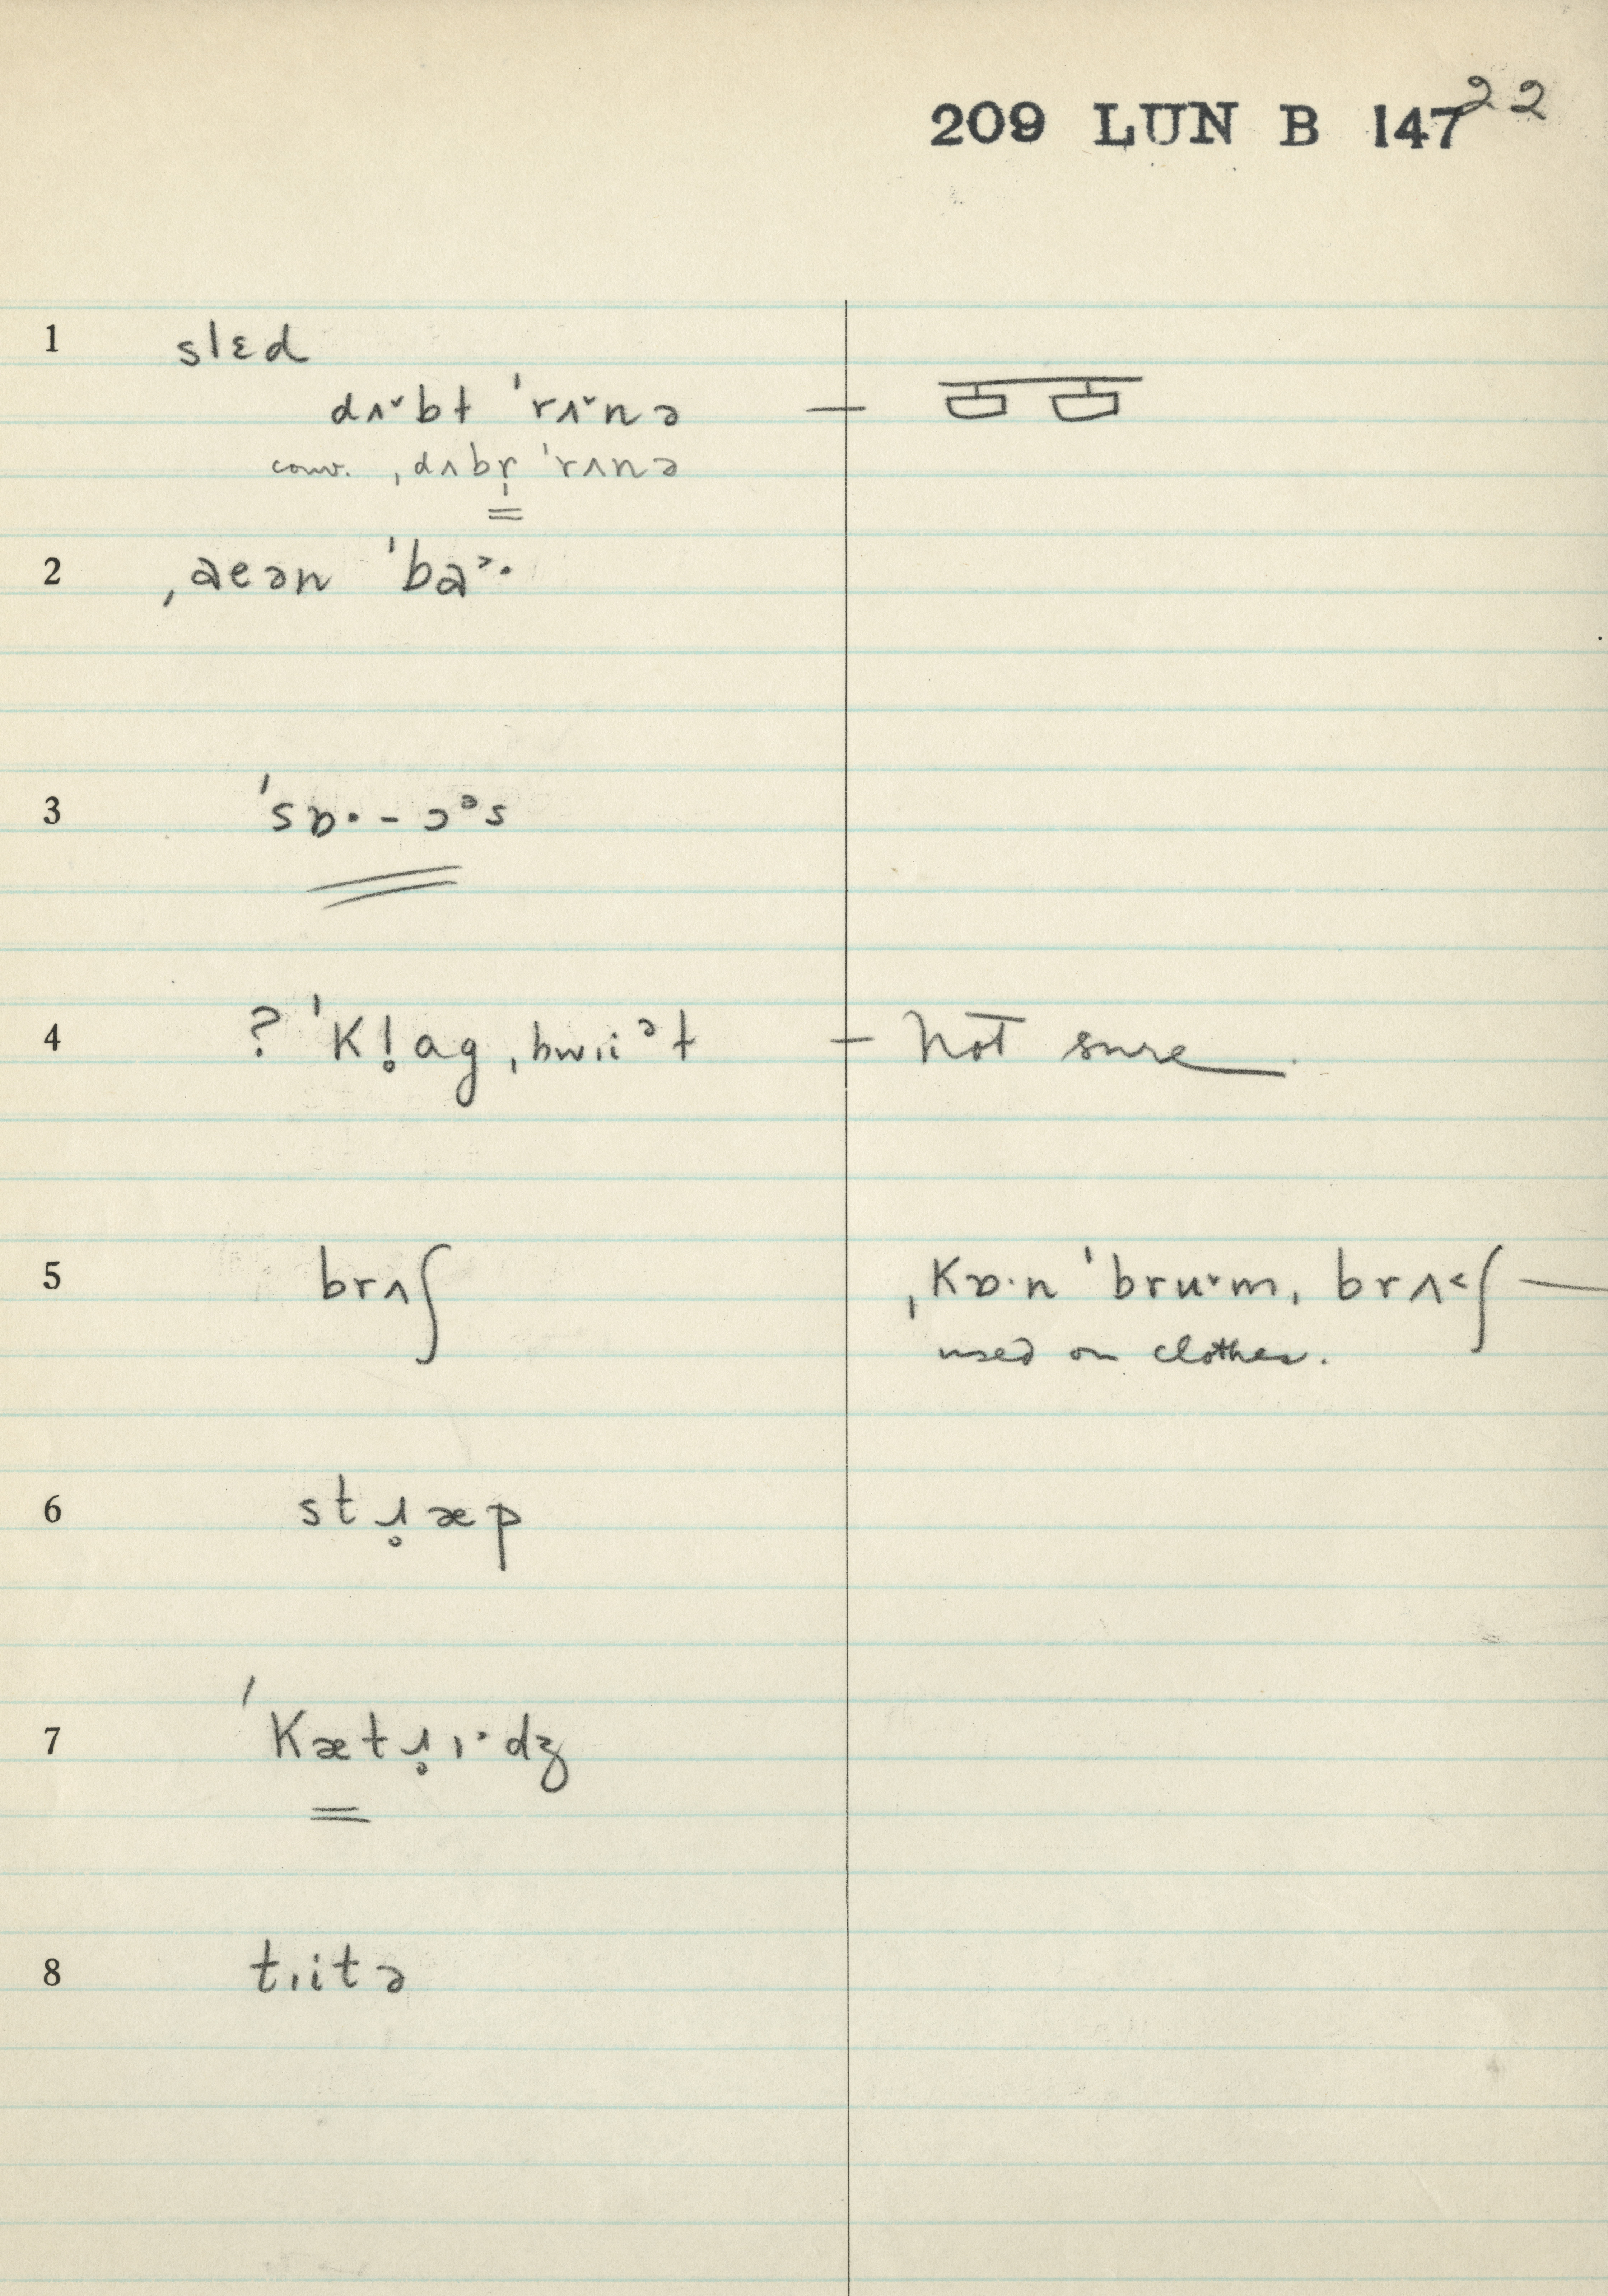 209 LUN B 147 22
1 slɛd
dʌ˅bt ˈrʌ˅nə —
conv. ˌdʌbr̩ ˈrʌnə
2 ˌaeən ˈba˃·
3 ˈsɒ·-ɔᵊs
4 ? ˈKl̥ag ˌhwıiᵊt — Not sure.
5 brʌʃ ˌKɒ·n ˈbru˅m ˌbrʌ˂ʃ —
used on clothes.
6 stɹ̥æp
7 ˈKætɹ̥ɪ˃dʒ
8 tıitə